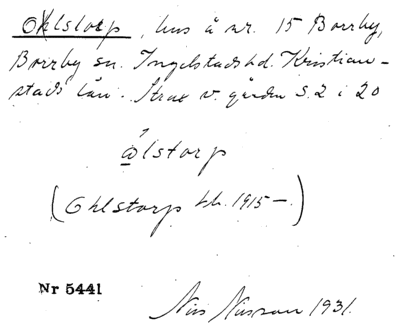 Ohlstorp, hus å nr. 15 Borrby,
Borrby sn. Ingelstads hd. Kristian-
stads län. Strax v. gården S. 2 i 20
ålstorp
(Ohlstorp kb. 1915-.)
Nr 5441
Nils Nilsson 1931.